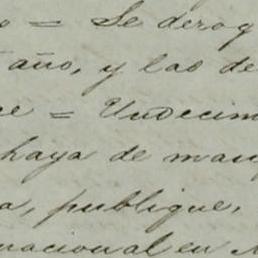 o = Se derog
año, y las de
ce = Undecim
haya de man
a, publique,
nacional en M